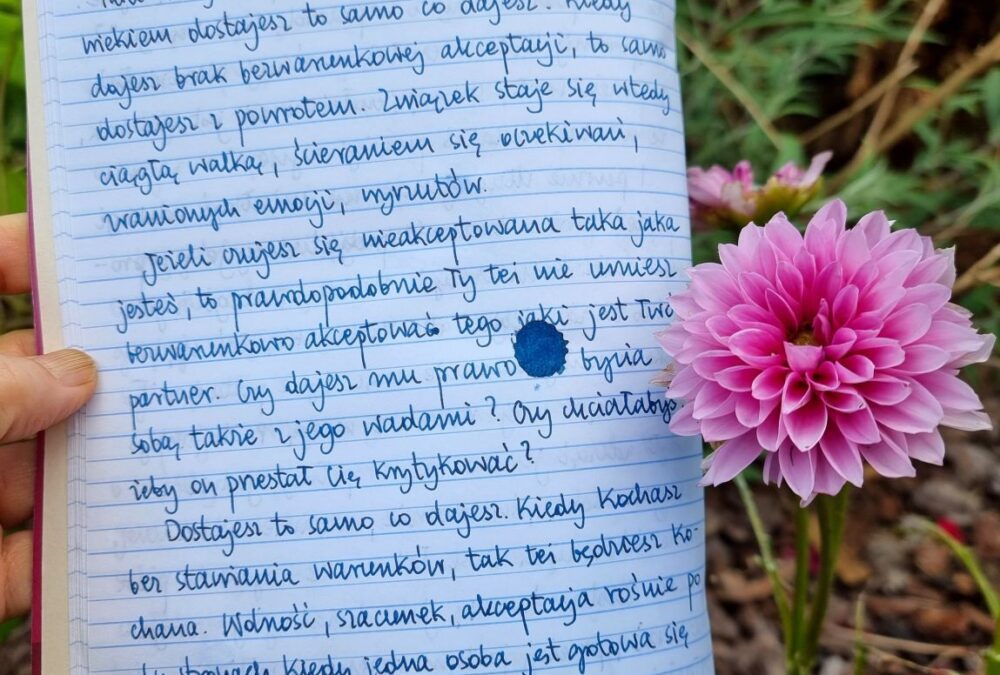 niekiem dostajesz to samo co dajesz. Kiedy
dajesz brak bezwarunkowej akceptacji, to samo
dostajesz z powrotem. Związek staje się wtedy
ciągłą walką, ścieraniem się oczekiwań,
zranionych emocji, wyrzutów.
Jeżeli czujesz się nieakceptowana taka jaka
jesteś, to prawdopodobnie Ty też nie umiesz
bezwarunkowo akceptować tego jaki jest Twój
partner. Czy dajesz mu prawo bycia
sobą, także z jego wadami? Czy chciałabyś,
żeby on przestał Cię krytykować?
Dostajesz to samo co dajesz. Kiedy kochasz
bez stawiania warunków, tak też będziesz ko-
chana. Wolność, szacunek, akceptacja rośnie po
kiedy jedna osoba jest gotowa się